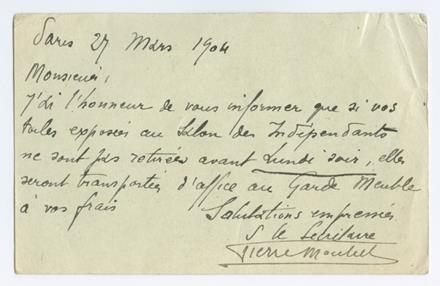 Paris 27 Mars 1904
Monsieur,
J'ai l'honneur de vous informer que si vos
toiles exposées au Salon des Indépendants
ne sont pas retirées avant Lundi soir, elles
seront transportées d'office au Garde Meuble
à vos frais
Salutations empressées
Le Secrétaire
Pierre